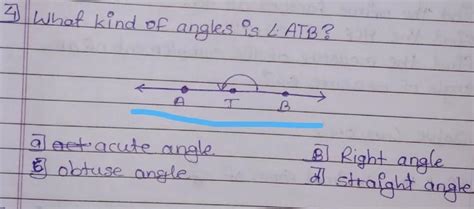 4) What kind of angles is ∠ATB?
A T B
a) acute angle
B) Right angle
b) obtuse angle
d) straight angle